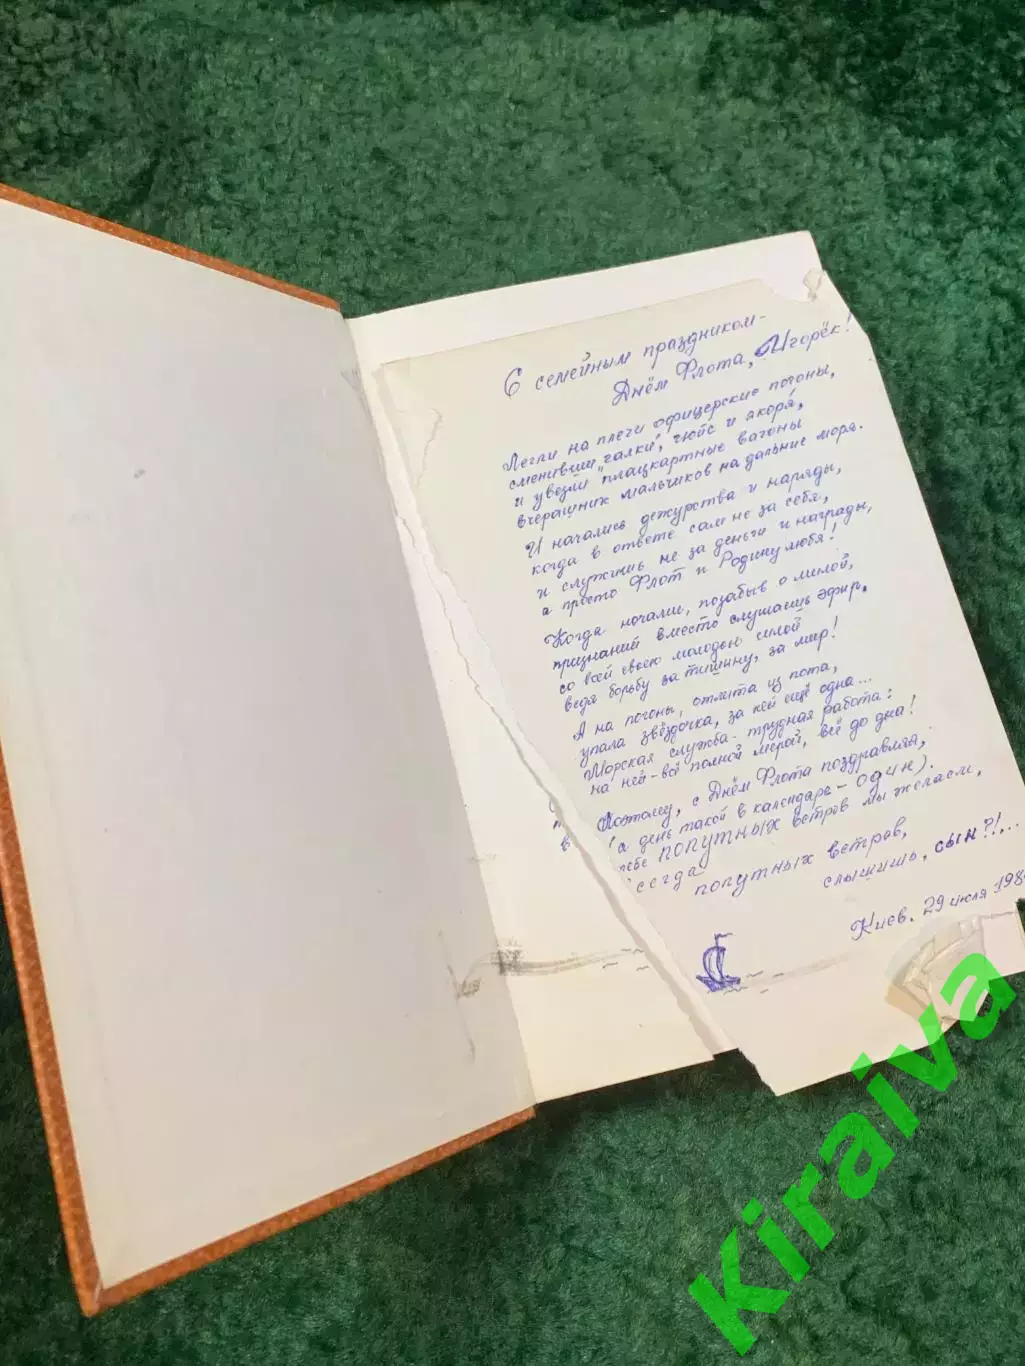 С семейным праздником -
Днём Флота, Игорёк!
Легли на плечи офицерские погоны,
сменивши "галки", гюйс и якоря,
и увезли плацкартные вагоны
вчерашних мальчиков на дальние моря.
И начались дежурства и наряды,
когда в ответе сам не за себя,
и служишь не за деньги и награды,
а просто Флот и Родину любя!
Когда ночами, позабыв о милой,
признаний вместо слушаешь эфир,
со всей своею молодою силой
ведя борьбу за тишину, за мир!
А на погоны, отлита из пота,
упала звёздочка, за ней ещё одна...
Морская служба - трудная работа:
на ней - всё полной мерой, всё до дна!
Поэтому, с Днём Флота поздравляя,
(а день такой в календаре - один)
тебе ПОПУТНЫХ ветров мы желаем,
всегда
попутных ветров,
слышишь, сын?!...
Киев. 29 июля 198
Kiraiva